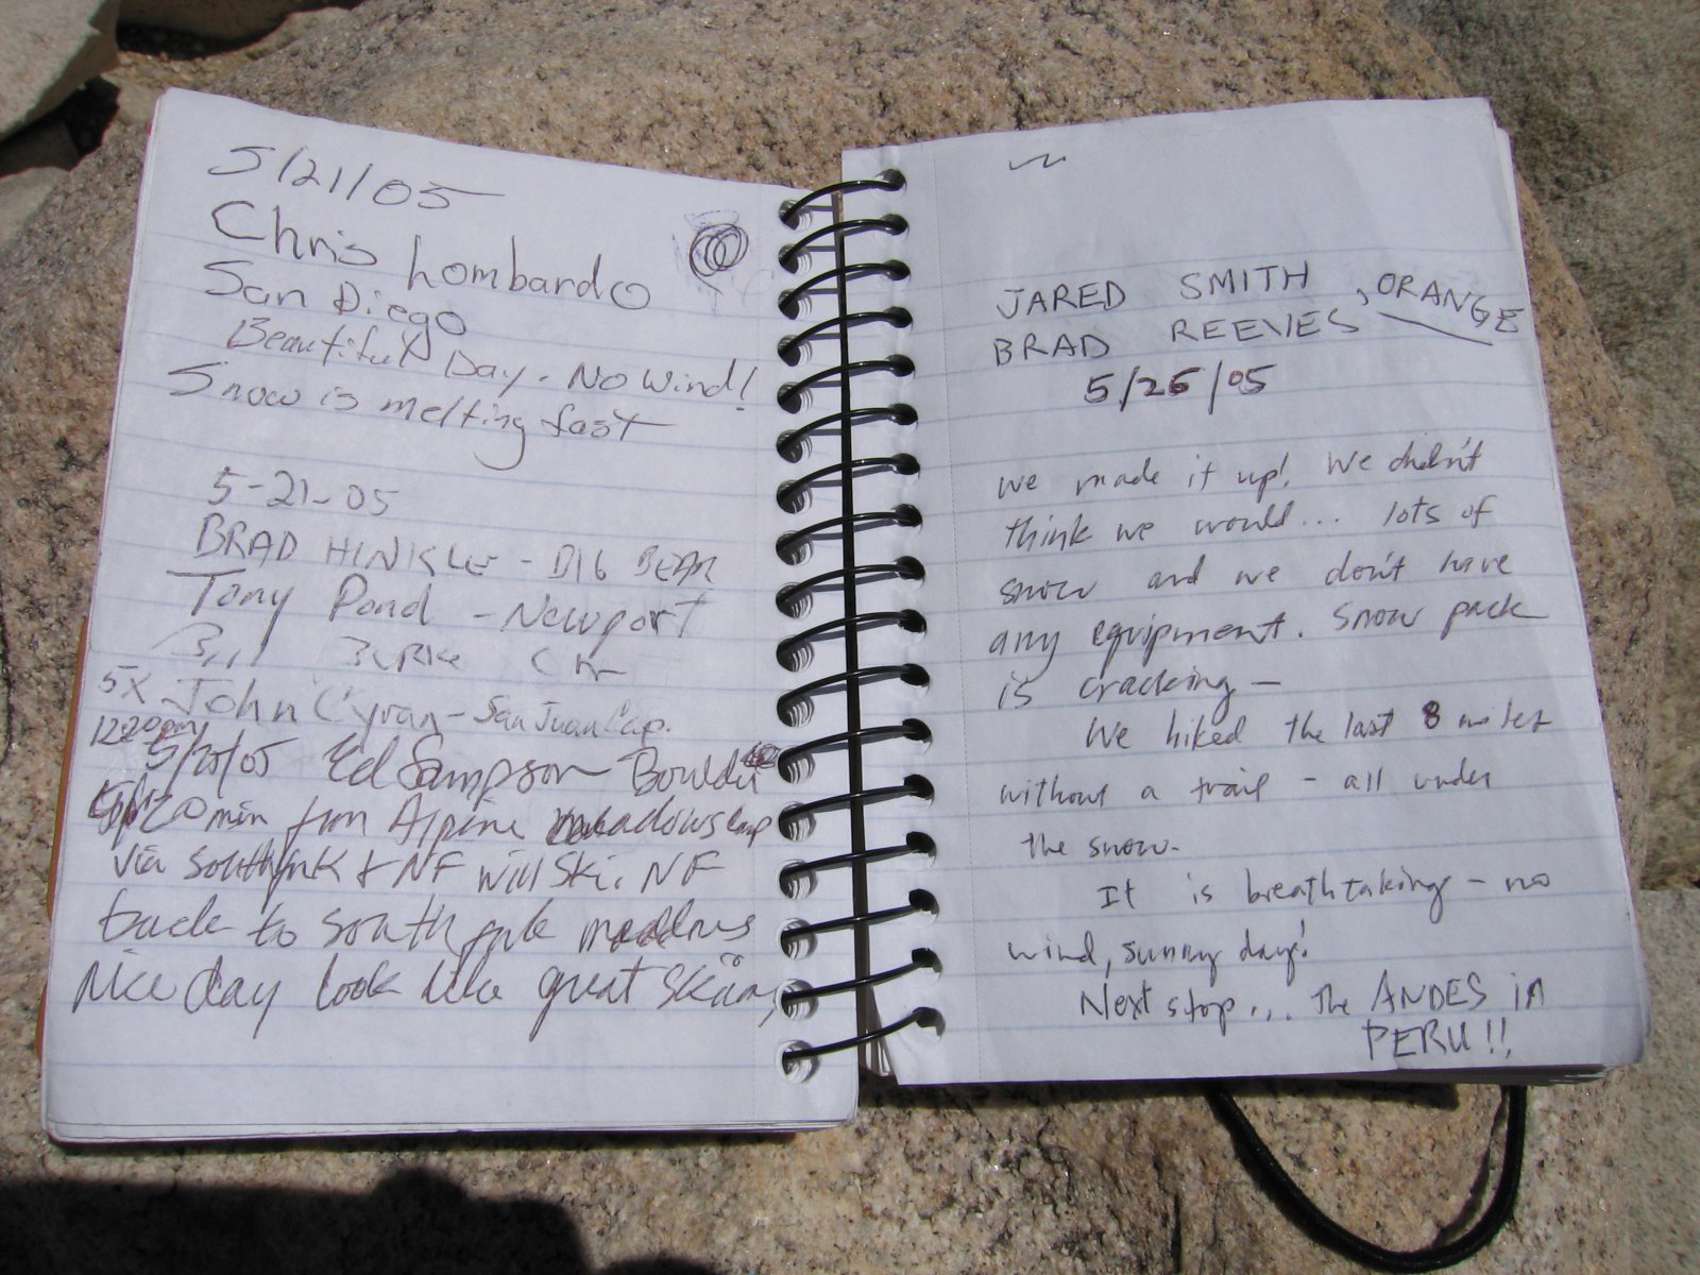 5/21/05
Chris Lombardo
San Diego
Beautiful Day. No wind!
Snow is melting fast
5-21-05
BRAD HINKLE - BIG BEAR
Tony Pond - Newport
Bill BURKE
5X John Cyran - San Juan Cap.
12:20pm
5/25/05 Ed Sampson Boulder
20 min from Alpine meadows camp
via south fork + NF will ski NF
back to south fork meadows
Nice day look like great skiing
JARED SMITH, ORANGE
BRAD REEVES
5/26/05
we made it up! We didn't
think we would... lots of
snow and we don't have
any equipment. Snow pack
is cracking -
We hiked the last 8 miles
without a trail - all under
the snow.
It is breathtaking - no
wind, sunny day!
Next stop... The ANDES in
PERU!!